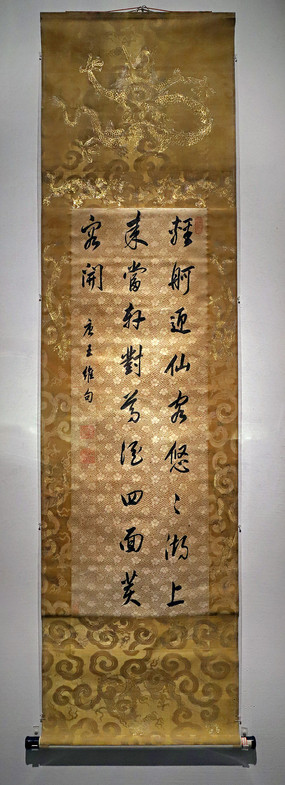 輕舸迎仙客悠〻湖上
來當軒對尊酒四面芙
蓉開
唐王維句